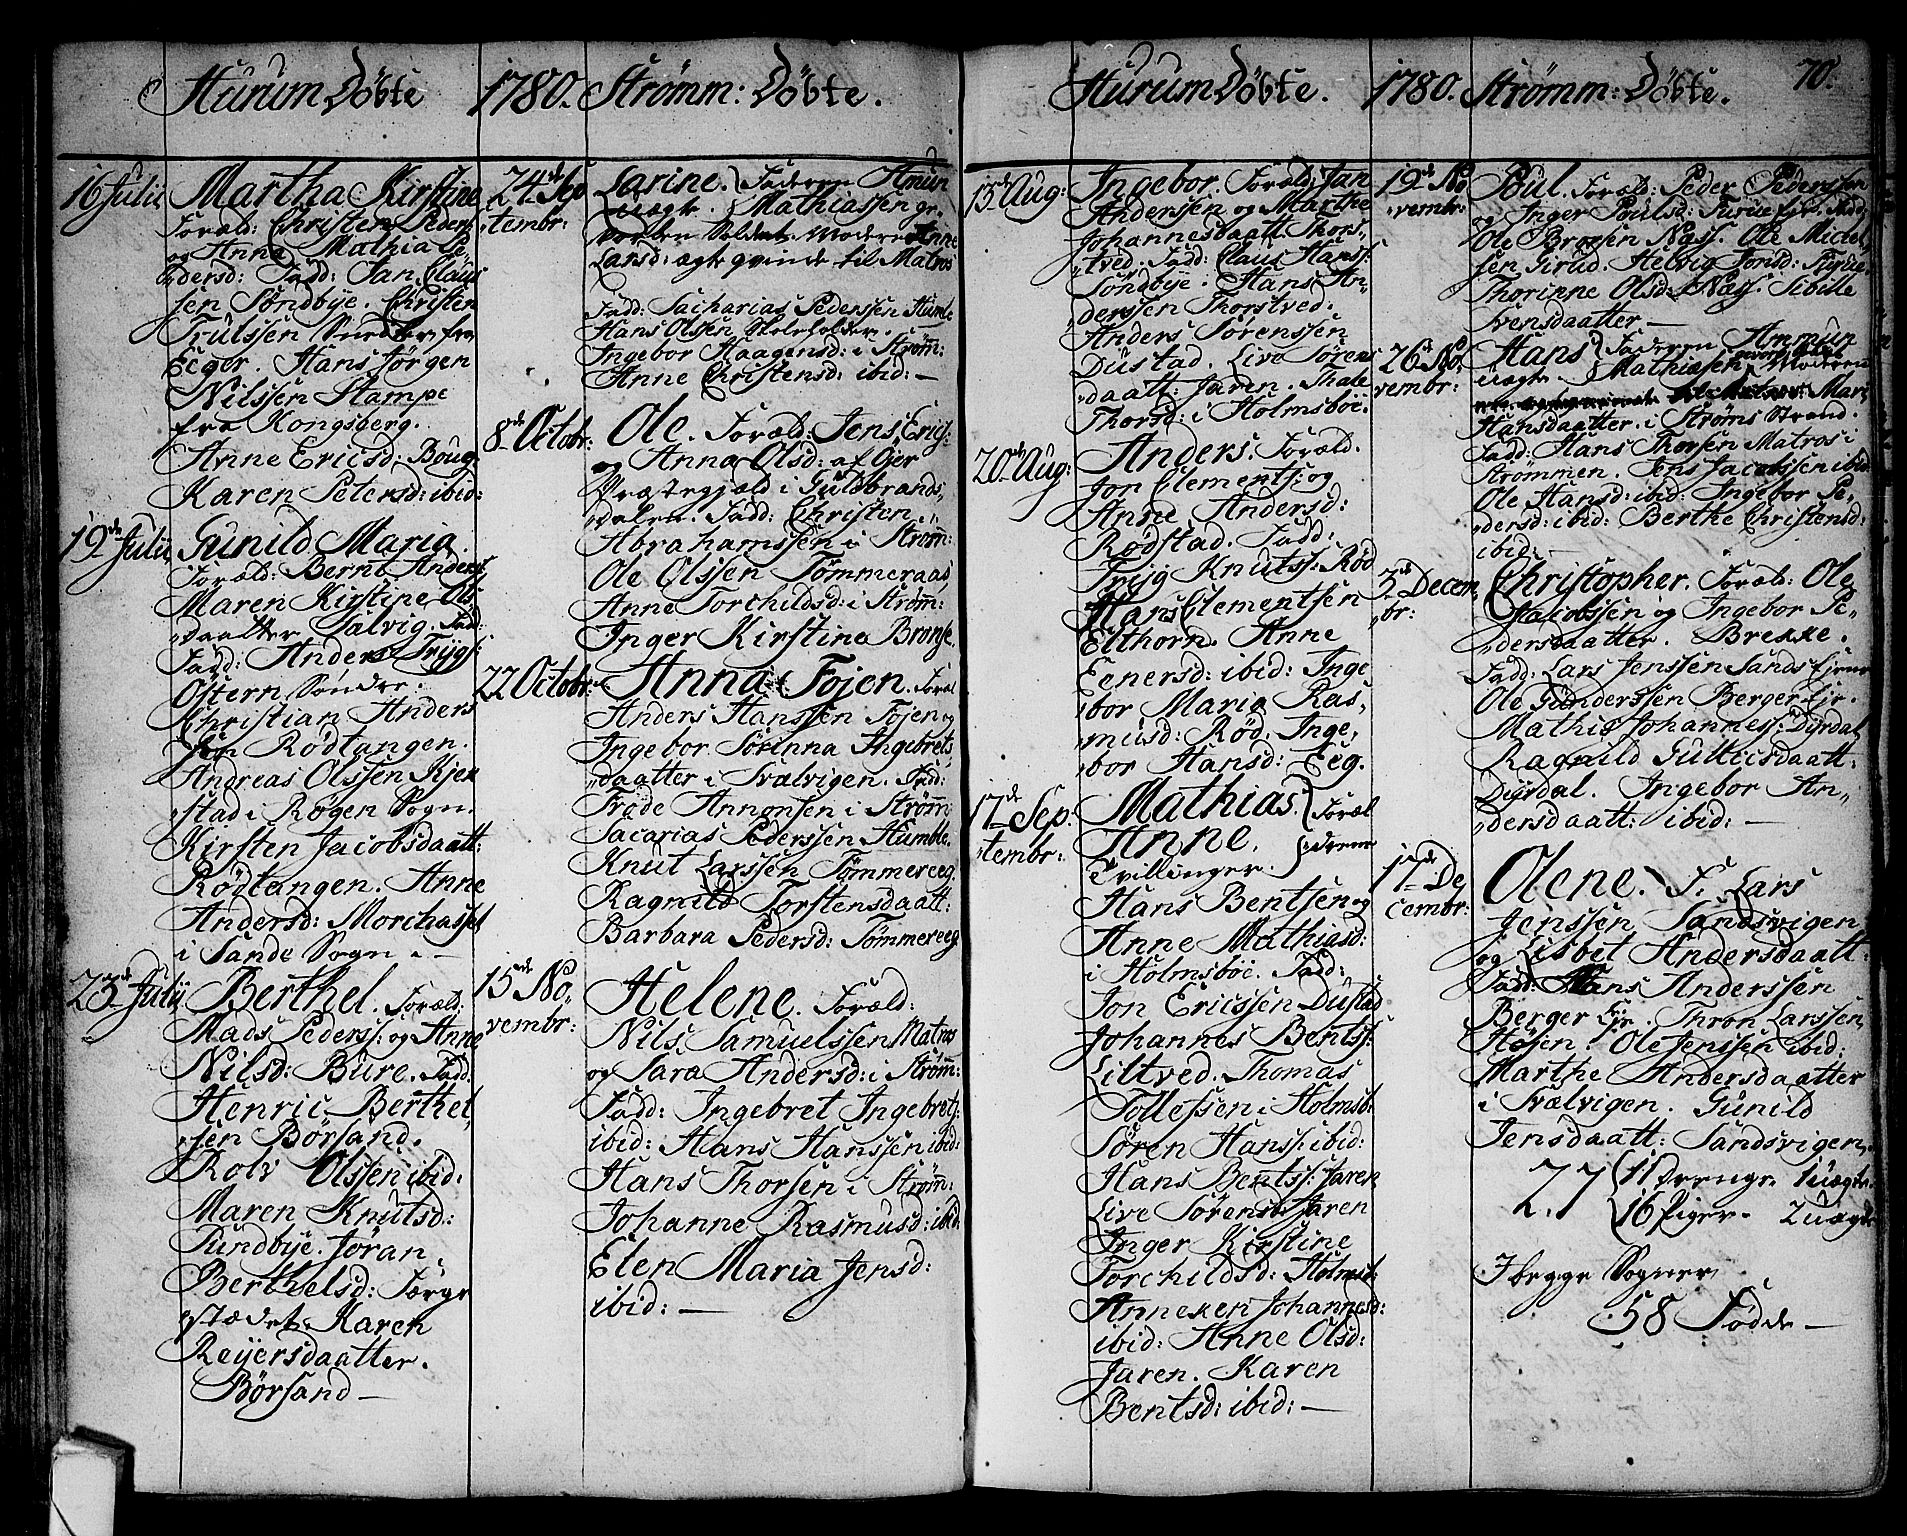 Hurum Döbte
1780. Strømm: Döbte.
16 Julii
Martha Kirstine
Foræld: Christen Peders
og Anne Mathia Pe-
dersd: Fadd: Jan Claus
sen Søndbÿe. Christen
Trulssen fra
Eeger. Hans Jørgen
Nilssen Stampe
fra Kongsberg.
Anne Ericsd: Boug
Karen Petersd: ibid:
19de Julii
Gunild Maria.
Foræld: Bernt Anders:
Maren Kirstine Ols
daatter Salvig. Fad:
Fadd: Anders Trÿgs:
Østern Søndre.
Christian Anders
sen Rödtangen.
Andreas Olssen Kjek
stad i Røgen Sogn.
Kirsten Jacobsdaatt:
Rödtangen. Anne
Andersd: Morchasset
i Sande Sogn. —
23de Julii
Berthel. Foræld:
Mads Peders: og Anne
Nilsd: Bure. Fadd:
Henric Berthel
sen Börsand.
Rolv Olssen ibid:
Maren Knutsd:
Sundbÿe. Jöran
Berthelsd: Færge
stædet. Karen
Reÿersdaatter.
Börsand —
24de Sep
tembr:
Larine. Faderen Amun
uægte. Mathiassen ge-
vorben Soldat. Moderen Anne
Larsd: ægte qvinde til Matros
Fadd: Sacharias Pederssen Humle
Hans Olssen Skoleholder.
Ingebor Haagensd: i Strøm:
Anne Christensd: ibid: —
8de Octobr:
Ole. Foræld: Jens Erics:
og Anna Olsd: af Öjer
Præstegjæld i Guldbrands,
dalen. Fadd: Christen
Abrahamssen i Strøm:
Ole Olssen Tømmeraas,
Anne Torchildsd: i Strøm:
Inger Kirstine Bronse.
22 Octobr:
Anna Föjen. Foræl
Anders Hanssen Föjen og
Ingebor Sörinna Ingebrets
daatter i Svælvigen. Fad:
Frode Annonsen i Strøm:
Sacarias Pederssen Humble.
Knut Larssen Tømmereeg.
Ragnild Torstensdaatt:
Barbara Pedersd: Tømmereeg.
15de No,
vembr:
Helene. Foræld:
Nils Samuelssen Matros
og Sara Andersd: i Strøm:
Fadd: Ingebret Ingebrets:
ibid: Hans Hanssen ibid:
Hans Thorsen i Strøm:
Johanne Rasmusd: ibid
Elen Maria Jensd:
ibid: —
Hurum Döbte.
1780. Strømm: Döbte.
70.
13de Aug:
Ingebor. Foræld: Jan
Anderssen og Marthe
Johannesdaatt: Thors,
tved. Fadd: Claus Hanss:
Söndbÿe. Hans An-
derssen Thorstved.
Anders Sörenssen
Dustad. Live Sörens
daatt: Jaren. Thale
Thorsd: i Holmsböe.
20de Aug:
Anders. Foræld:
Jon Clements: og
Anne Andersd:
Rødstad. Fadd:
Trÿg Knuts: Rød
Hans Clementsen
Elthorn. Anne
Eenersd: ibid: Inge
bor Maria Ras,
musd: Rød. Inge,
bor Hansd: Eeg.
17de Sep:
tembr:
Mathias. Foræl
Anne. drene
Tvillinger.
Hans Bentsen og
Anne Mathiasd:
i Holmsböe. Fadd:
Jon Ericssen Dustad
Johannes Bents:
Liltved. Thomas
Tollefsen i Holmsb:
Sören Hanss: ibid:
Hans Bents: Jaren
Live Sörens: Jaren
Inger Kirstine
Torchildsd: Holmsb:
Anneken Johannesd:
ibid: Anne Olsd:
Jaren. Karen
Bentsd: ibid: —
19de No
vembr:
Poul. Foræld: Peder Pederssen
og Inger Poulsd: Fadd:
Ole Brosen Næss. Ole Michel,
sen Girud. Helvig Jonsd:
Thorinne Olsd: Næs. Sibille
Svensdaatter —
26de No
vembr:
Hans Faderen Ammun
uægte. Mathiassen Moderen
Mari
Hansdaatter i Strøms Strand.
Fadd: Hans Thorsen Matros i
Strømmen. Jens Jacobssen ibid:
Ole Hansd: ibid: Ingebor Pe,
dersd: ibid: Berthe Christensd:
ibid: —
3de Decem
br:
Christopher. Foræld: Ole
Jacobssen og Ingebor Pe,
dersdaatter. Brekke.
Fadd: Lars Jenssen Sands Ejer
Ole Gunderssen Berger Ejr.
Mathis Johannes: Dÿrdal
Ragnild Gulleicsdaatt:
Dÿrdal. Ingebor An,
dersdaatt: ibid: —
17de De,
cembr:
Olene. F. Lars
Jenssen Sandsvigen
og Lisbet Andersdaatt:
Fadd: Hans Anderssen
Berger Ejr. Thron Larssen
Høsen. Ole Jenssen ibid:
Marthe Andersdaatter
i Svælvigen. Gunild
Jensdaatt: Sandsvigen.
27 11 Drenge 1 uægte.
16 Piger. 2 uægte
I begge Sogner
58 Födde —